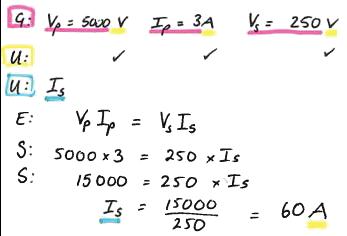 G: Vp = 5000 V Ip = 3A Vs = 250 V
U: ✓ ✓ ✓
U: Is
E: Vp Ip = Vs Is
S: 5000 × 3 = 250 × Is
S: 15000 = 250 × Is
Is = 15000/250 = 60 A